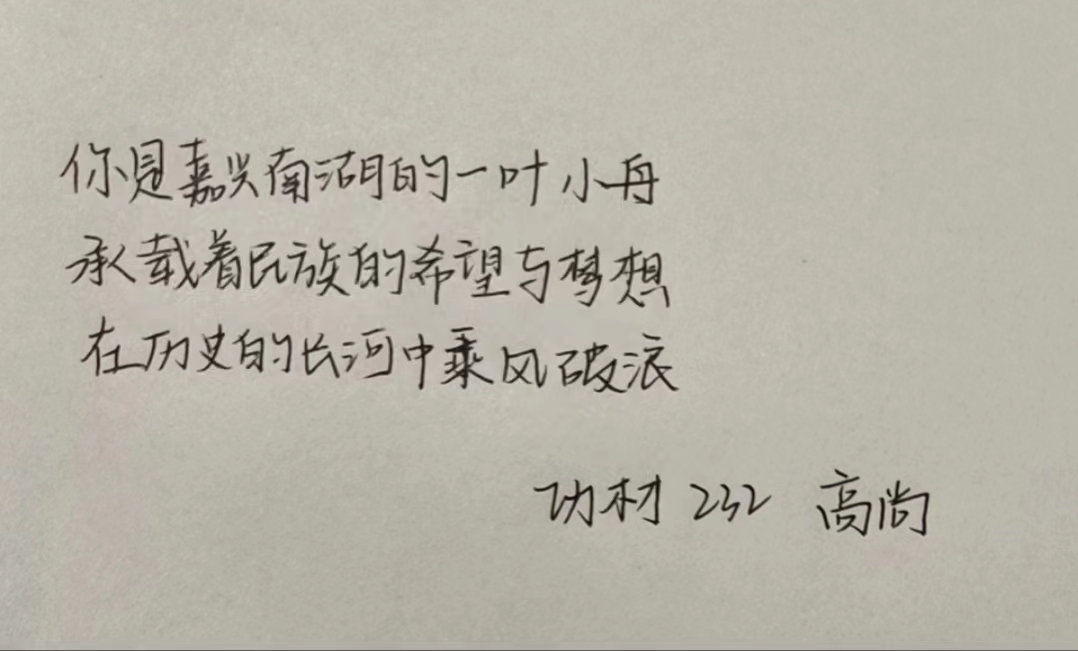 你是嘉兴南湖的一叶小舟
承载着民族的希望与梦想
在历史的长河中乘风破浪
功材 232 高尚